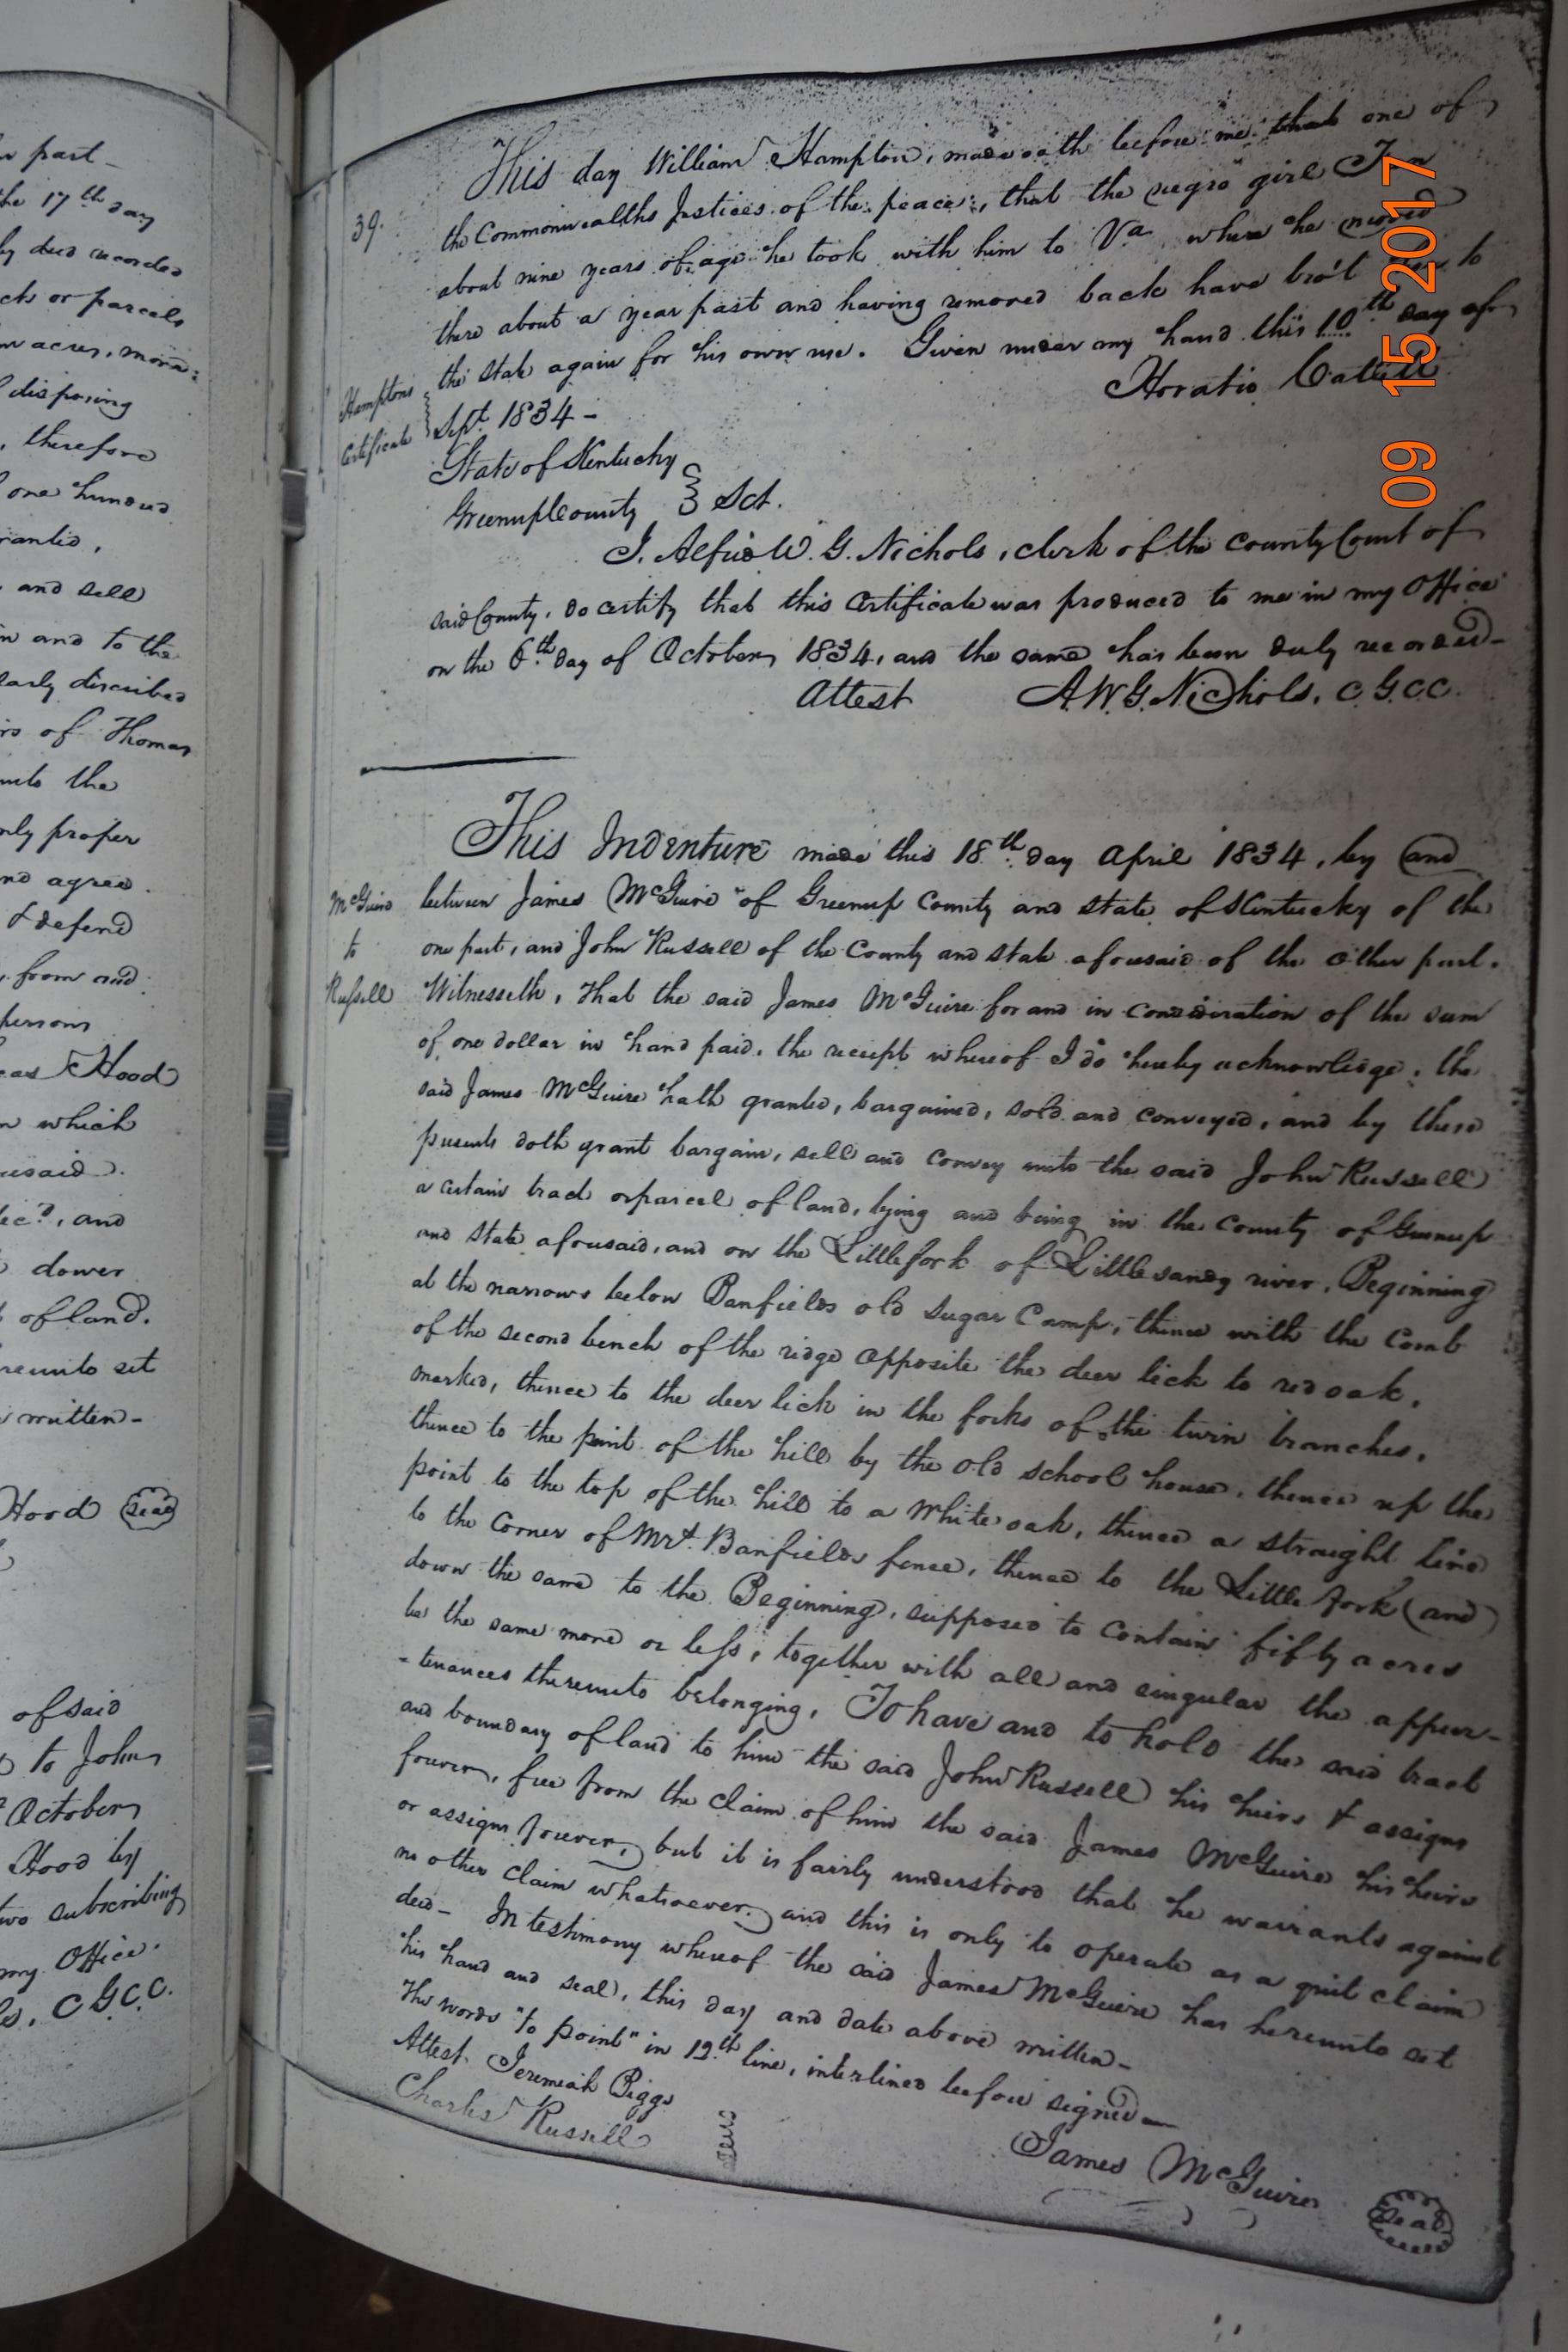 r part-
the 17th day
by deed recorded
ck or parcels
acres, more
disposing
, therefore
one hundred
ranted,
and sell
in and to the
larly discribed
rs of Thomas
unto the
nly proper
nd agree.
& defend
from and
persons
Hood
which
resaid.
dec.d, and
dower
of land.
reunto set
written-
Hood Seal
of said
to John
October
Hood by
two subscribing
my Office.
C.G.C.C.
39.
This day William Hampton, made oath before me that one of
the Commonwealths Justices of the peace, that the negro girl
about nine years of age he took with him to Va where he moved
there about a year past and having removed back have bro't to
the state again for his own use. Given under my hand this 10th day of
Sept. 1834-
Horatio Catlett
Hamptons
Certificate
State of Kentucky
Greenup County } Sct.
I, Alfred W. G. Nichols, clerk of the County Court of
said County, do certify that this Certificate was produced to me in my Office
on the 6th day of October, 1834, and the same has been duly recorded-
Attest A. W. G. Nichols, C.G.C.C.
McGuire
to
Russell
This Indenture made this 18th day April 1834, by and
between James McGuire of Greenup County and State of Kentucky of the
one part, and John Russell of the County and State aforesaid of the other part.
Witnesseth, that the said James McGuire for and in consideration of the sum
of one dollar in hand paid, the receipt whereof I do hereby acknowledge, the
said James McGuire hath granted, bargained, sold and conveyed, and by these
presents doth grant bargain, sell and convey unto the said John Russell
a certain tract or parcel of land, lying and being in the County of Greenup
and State aforesaid, and on the Little fork of Little sandy river, Beginning
at the narrows below Banfields old Sugar Camp, thence with the Comb
of the second bench of the ridge opposite the deer lick to red oak,
marked, thence to the deer lick in the forks of the twin branches,
thence to the point of the hill by the old school house, thence up the
point to the top of the hill to a White oak, thence a straight line
to the Corner of Mrs. Banfields fence, thence to the Little fork and
down the same to the Beginning, supposed to contain fifty acres
be the same more or less, together with all and singular the appur-
-tenances thereunto belonging, To have and to hold the said tract
and boundary of land to him the said John Russell his heirs & assigns
forever, free from the claim of him the said James McGuire his heirs
or assigns forever, but it is fairly understood that he warrants against
no other claim whatsoever, and this is only to operate as a quit claim
deed- In testimony whereof the said James McGuire has hereunto set
his hand and seal, this day and date above written-
The words "to point" in 12th line, interlined before signed-
Attest Jeremiah Biggs
Charles Russell
James McGuire Seal
09 15 2017